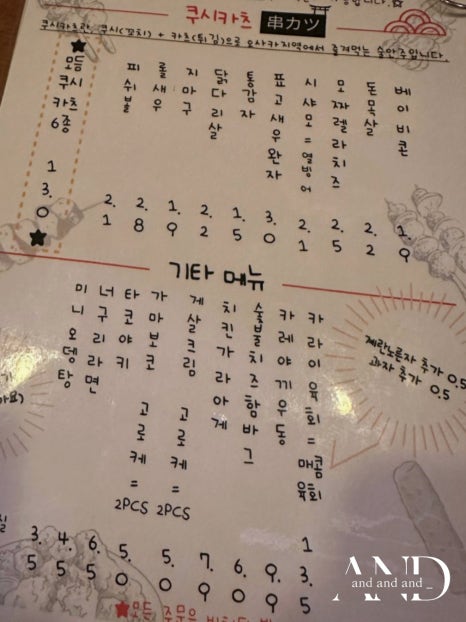 쿠시카츠 串カツ
쿠시카츠란, 쿠시(꼬치) + 카츠(튀김)으로 오사카지역에서 즐겨먹는 술안주입니다.
모듬 쿠시카츠 6종 13.0
피쉬볼 2.1
롤새우 2.8
지마구 1.9
닭다리살 2.2
통감자 1.5
표고새우완자 3.0
시샤모=열빙어 2.1
모짜렐라치즈 2.5
돈목살 2.2
베이비콘 1.9
기타 메뉴
미니오뎅탕 3.5
너구리라면 4.5
타코야키 6.0
가마보코 고로케=2PCS 5.0
게살크림 고로케=2PCS 5.0
치킨가라아게 7.9
숯불치즈함바그 6.0
카레야끼우동 9.9
카라이육회=매콤육회 13.5
계란노른자 추가 0.5
과자 추가 0.5
AND
and and and_